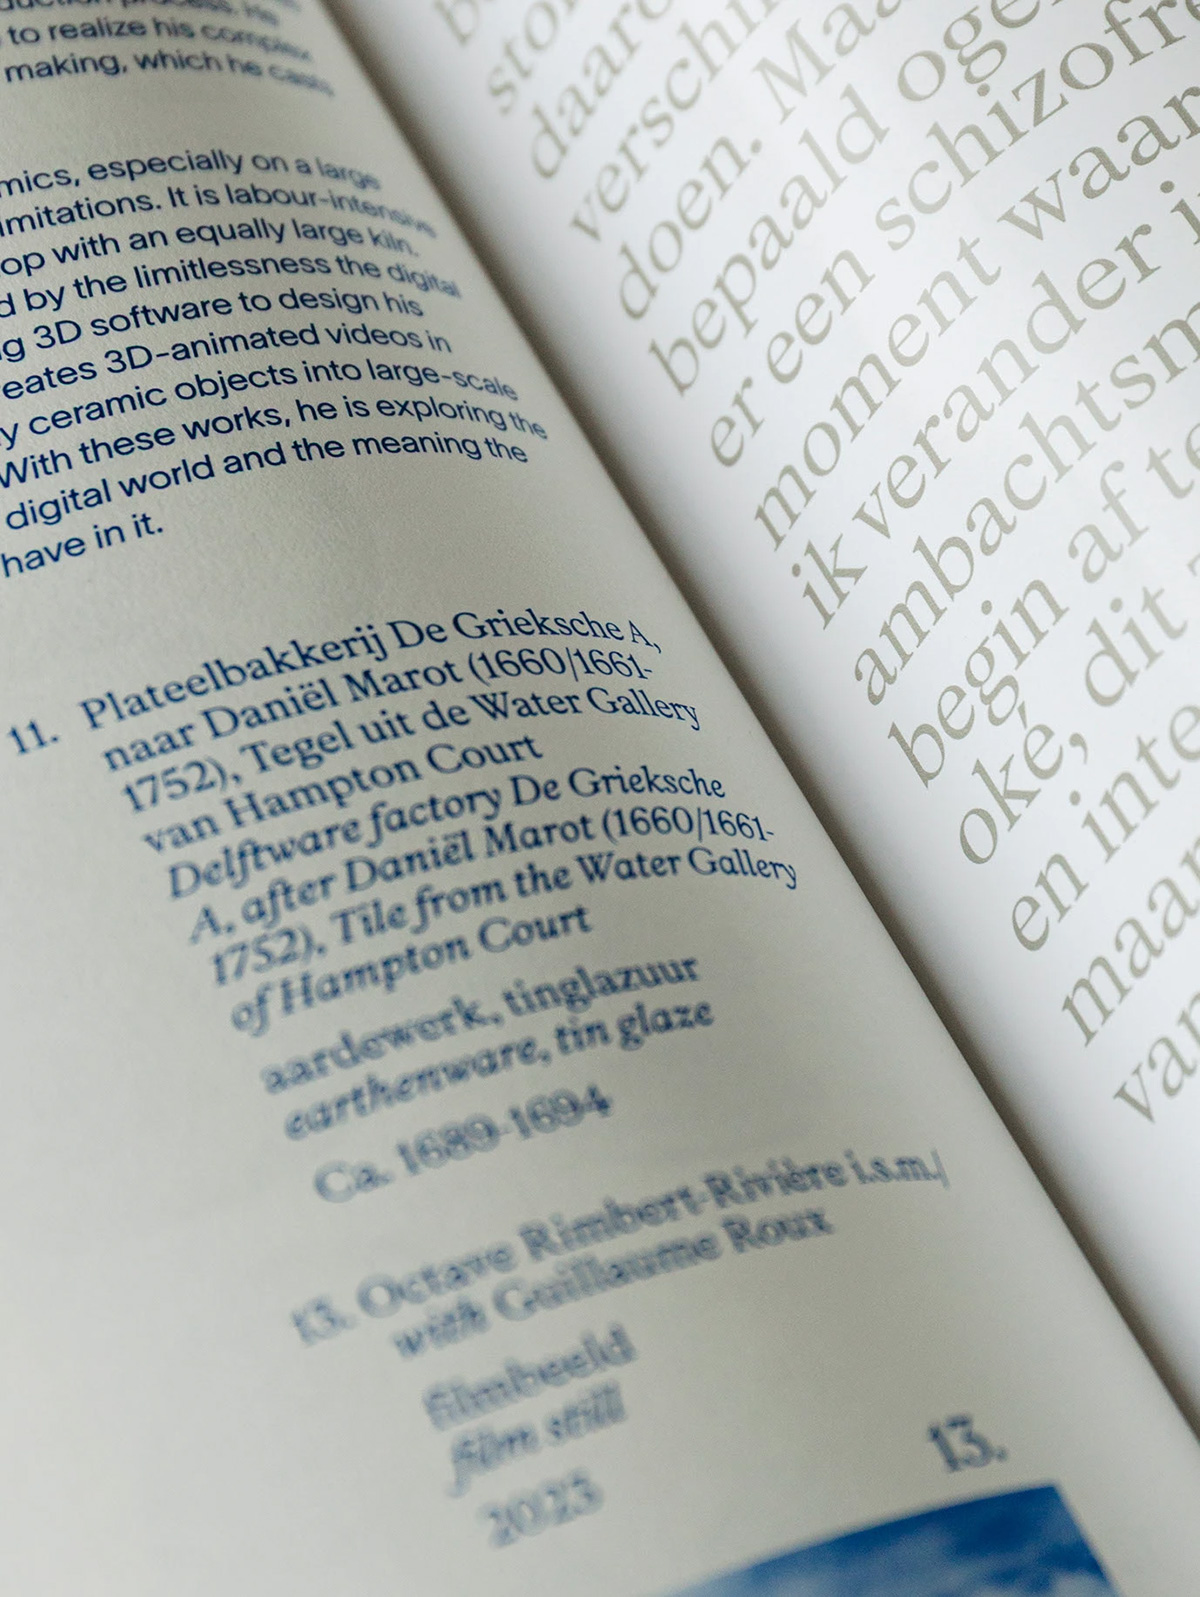 to realize his complex
making, which he casts
mics, especially on a large
imitations. It is labour-intensive
op with an equally large kiln.
d by the limitlessness the digital
g 3D software to design his
eates 3D-animated videos in
y ceramic objects into large-scale
With these works, he is exploring the
digital world and the meaning the
have in it.
11. Plateelbakkerij De Grieksche A,
naar Daniël Marot (1660/1661-
1752), Tegel uit de Water Gallery
van Hampton Court
Delftware factory De Grieksche
A, after Daniël Marot (1660/1661-
1752), Tile from the Water Gallery
of Hampton Court
aardewerk, tinglazuur
earthenware, tin glaze
Ca. 1689-1694
13. Octave Rimbert-Rivière i.s.m./
with Guillaume Roux
filmbeeld
film still
2023
13.
daaro
verschi
doen. Maa
bepaald oge
er een schizofre
moment waar
ik verander i
ambachtsm
begin af te
oké, dit
en inte
maar
van